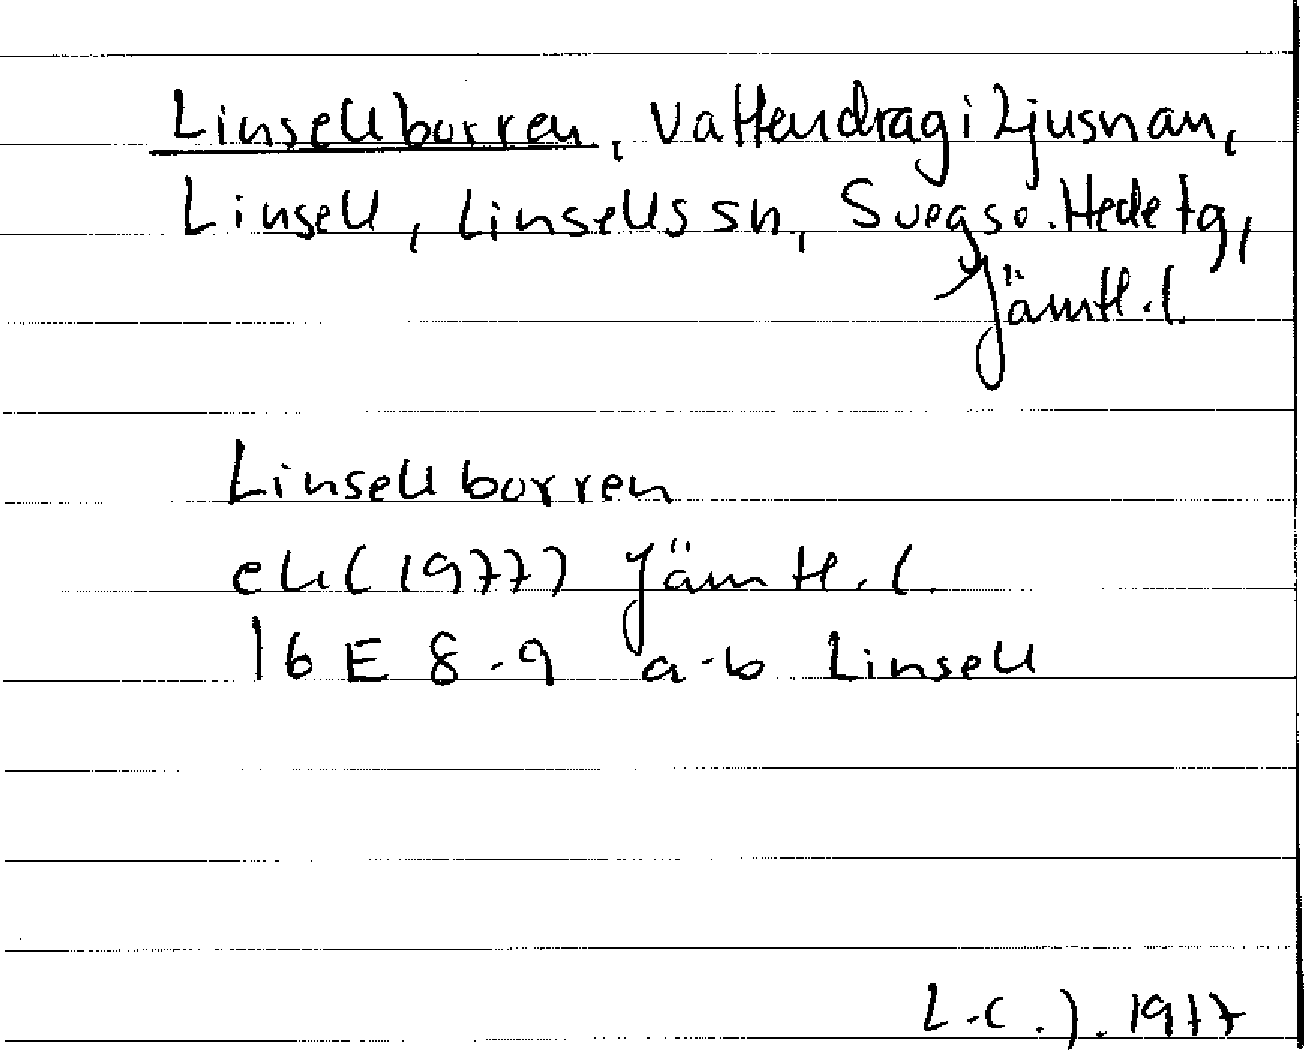 Linsellborren, Vattendrag i Ljusnan,
Linsell, Linsells sn, Svegs o. Hede tg,
Jämtl. l.
Linsellborren
ek (1977) Jämtl. l.
16 E 8-9 a-b Linsell
L.C.J. 1977